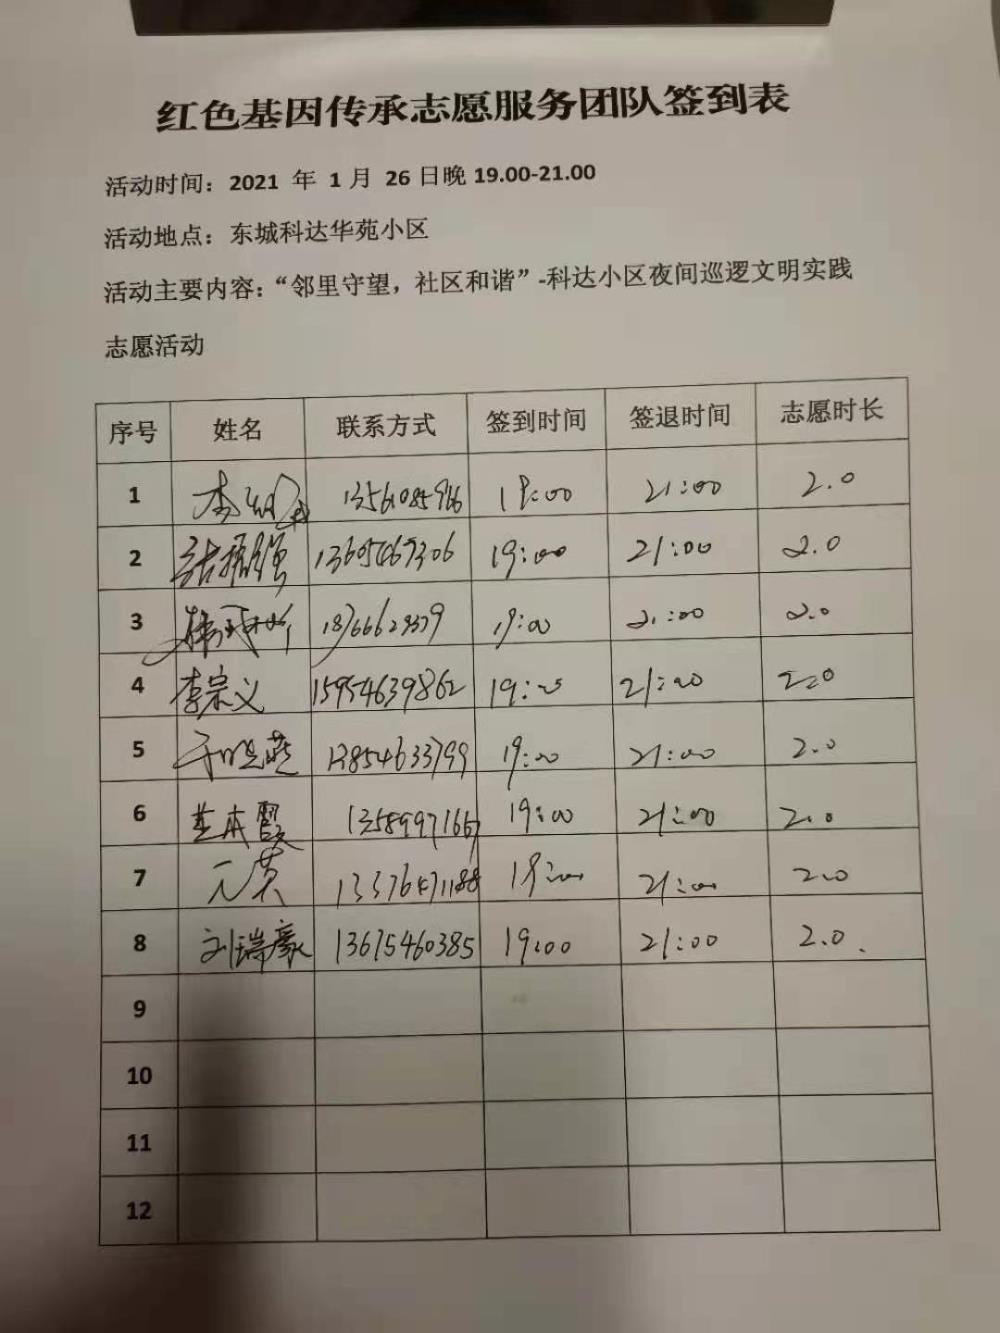 红色基因传承志愿服务团队签到表
活动时间：2021 年 1 月 26 日晚 19.00-21.00
活动地点：东城科达华苑小区
活动主要内容：“邻里守望，社区和谐”-科达小区夜间巡逻文明实践
志愿活动
序号 姓名 联系方式 签到时间 签退时间 志愿时长
1 19:00 21:00 2.0
2 13605467306 19:00 21:00 2.0
3 19:00 21:00 2.0
4 李宗义 15954639862 19:00 21:00 2.0
5 13854633799 19:00 21:00 2.0
6 19:00 21:00 2.0
7 13376471188 19:00 21:00 2.0
8 刘瑞豪 13675460385 19:00 21:00 2.0.
9
10
11
12